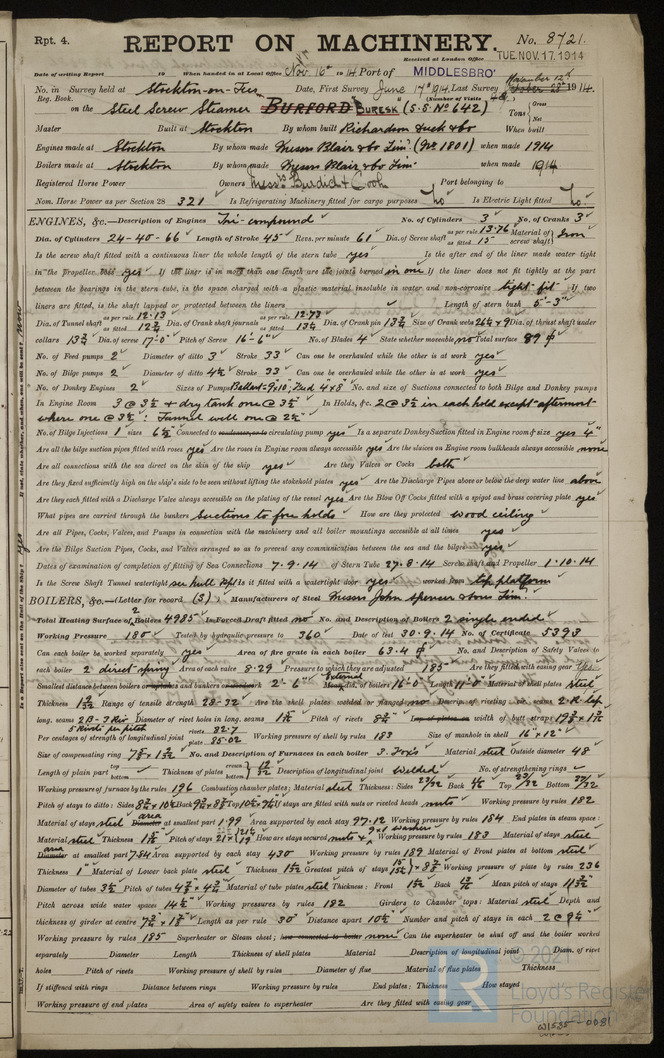 Rpt. 4.
REPORT ON MACHINERY.
No. 8721.
Received at London Office
TUE. NOV. 17. 1914
Date of writing Report 19 When handed in at Local Office Nov. 16th 1914 Port of MIDDLESBRO'
No. in Survey held at Stockton-on-Tees Date, First Survey June 17th 1914, Last Survey November 12th 1914.
Reg. Book.
(Number of Visits
on the Steel Screw Steamer BURFORD BURESK (S.S. No 642)
Tons Gross Net
Master Built at Stockton By whom built Richardson Duck & Co When built
Engines made at Stockton By whom made Messrs Blair & Co Lim. (No 1801) when made 1914
Boilers made at Stockton By whom made Messrs Blair & Co Lim. when made 1914
Registered Horse Power Owners Messrs Burdick & Cook Port belonging to
Nom. Horse Power as per Section 28 321 Is Refrigerating Machinery fitted for cargo purposes no Is Electric Light fitted no.
ENGINES, &c.—Description of Engines Tri-compound No. of Cylinders 3 No. of Cranks 3
Dia. of Cylinders 24-40-66 Length of Stroke 45 Revs. per minute 61 Dia. of Screw shaft as per rule 13.76 as fitted 15 Material of screw shaft Iron
Is the screw shaft fitted with a continuous liner the whole length of the stern tube yes Is the after end of the liner made water tight
in the propeller boss yes If the liner is in more than one length are the joints burned in one If the liner does not fit tightly at the part
between the bearings in the stern tube, is the space charged with a plastic material insoluble in water and non-corrosive tight fit If two
liners are fitted, is the shaft lapped or protected between the liners Length of stern bush 5'-3"
Dia. of Tunnel shaft as per rule 12.13 as fitted 12 3/4 Dia. of Crank shaft journals as per rule 12.73 as fitted 13 1/4 Dia. of Crank pin 13 3/4 Size of Crank webs 26 1/4 x 9 Dia. of thrust shaft under
collars 13 3/4 Dia. of screw 17-0 Pitch of Screw 16-6 No. of Blades 4 State whether moveable no Total surface 89
No. of Feed pumps 2 Diameter of ditto 3 Stroke 33 Can one be overhauled while the other is at work yes
No. of Bilge pumps 2 Diameter of ditto 4 1/2 Stroke 33 Can one be overhauled while the other is at work yes
No. of Donkey Engines 2 Sizes of Pumps Ballast = 9x10", Feed 4x8" No. and size of Suctions connected to both Bilge and Donkey pumps
In Engine Room 3 @ 3 1/2 & dry tank one @ 3 1/2 In Holds, &c. 2 @ 3 1/2 in each hold except aftermost
where one @ 3 1/2: Tunnel well one @ 2 1/2
No. of Bilge Injections 1 sizes 6 1/2 Connected to condenser, or to circulating pump yes Is a separate Donkey Suction fitted in Engine room & size yes 4"
Are all the bilge suction pipes fitted with roses yes Are the roses in Engine room always accessible yes Are the sluices on Engine room bulkheads always accessible none
Are all connections with the sea direct on the skin of the ship yes Are they Valves or Cocks both
Are they fixed sufficiently high on the ship's side to be seen without lifting the stokehold plates yes Are the Discharge Pipes above or below the deep water line above
Are they each fitted with a Discharge Valve always accessible on the plating of the vessel yes Are the Blow Off Cocks fitted with a spigot and brass covering plate yes
What pipes are carried through the bunkers Suctions to fore holds How are they protected wood ceiling
Are all Pipes, Cocks, Valves, and Pumps in connection with the machinery and all boiler mountings accessible at all times yes
Are the Bilge Suction Pipes, Cocks, and Valves arranged so as to prevent any communication between the sea and the bilges yes
Dates of examination of completion of fitting of Sea Connections 7.9.14 of Stern Tube 27.8.14 Screw shaft and Propeller 1.10.14
Is the Screw Shaft Tunnel watertight see hull rept Is it fitted with a watertight door yes worked from top platform
BOILERS, &c.—(Letter for record (S) Manufacturers of Steel Messrs John Spencer & Sons Lim.
Total Heating Surface of 2 Boilers 4985 Is Forced Draft fitted no No. and Description of Boilers 2 single ended
Working Pressure 180 Tested by hydraulic pressure to 360 Date of test 30.9.14 No. of Certificate 5393
Can each boiler be worked separately yes Area of fire grate in each boiler 63.4 No. and Description of Safety Valves to
each boiler 2 direct spring Area of each valve 8.29 Pressure to which they are adjusted 185 Are they fitted with easing gear yes
Smallest distance between boilers or uptakes and bunkers or woodwork 2'-6" External Mean dia. of boilers 16'-0" Length 11'-0" Material of shell plates steel
Thickness 1 9/32 Range of tensile strength 28-32 Are the shell plates welded or flanged no Descrip. of riveting: cir. seams 2 R. Lap
long. seams 2 B.S. 3 Riv. 5 Rivets per pitch Diameter of rivet holes in long. seams 1 5/16 Pitch of rivets 8 3/4 Lap of plates or width of butt straps
Per centages of strength of longitudinal joint rivets 82.7 plate 85.02 Working pressure of shell by rules 183 Size of manhole in shell 16" x 12"
Size of compensating ring No. and Description of Furnaces in each boiler Material steel Outside diameter 48
Length of plain part top bottom Thickness of plates crown bottom 19/32 Description of longitudinal joint welded No. of strengthening rings
Working pressure of furnace by the rules 196 Combustion chamber plates: Material steel Thickness: Sides 23/32 Back 11/16 Top 23/32 Bottom 27/32
Pitch of stays to ditto: Sides Back Top If stays are fitted with nuts or riveted heads nuts Working pressure by rules 182
Material of stays steel area Diameter at smallest part 1.99 Area supported by each stay 97.12 Working pressure by rules 184 End plates in steam space:
Material steel Thickness Pitch of stays How are stays secured nuts & washers Working pressure by rules 183 Material of stays steel
area Diameter at smallest part 7.54 Area supported by each stay 430 Working pressure by rules 189 Material of Front plates at bottom steel
Thickness 1" Material of Lower back plate steel Thickness Greatest pitch of stays Working pressure of plate by rules 236
Diameter of tubes 3 1/2 Pitch of tubes Material of tube plates steel Thickness: Front Back Mean pitch of stays
Pitch across wide water spaces 14 1/2 Working pressures by rules 182 Girders to Chamber tops: Material steel Depth and
thickness of girder at centre Length as per rule 30" Distance apart 10 1/2 Number and pitch of stays in each 2 @ 9 1/2
Working pressure by rules 185 Superheater or Steam chest; how connected to boiler none Can the superheater be shut off and the boiler worked
separately Diameter Length Thickness of shell plates Material Description of longitudinal joint Diam. of rivet
holes Pitch of rivets Working pressure of shell by rules Diameter of flue Material of flue plates Thickness
If stiffened with rings Distance between rings Working pressure by rules End plates: Thickness How stayed
Working pressure of end plates Area of safety valves to superheater Are they fitted with easing gear
© 2021
Lloyd's Register
Foundation
W1535-0081